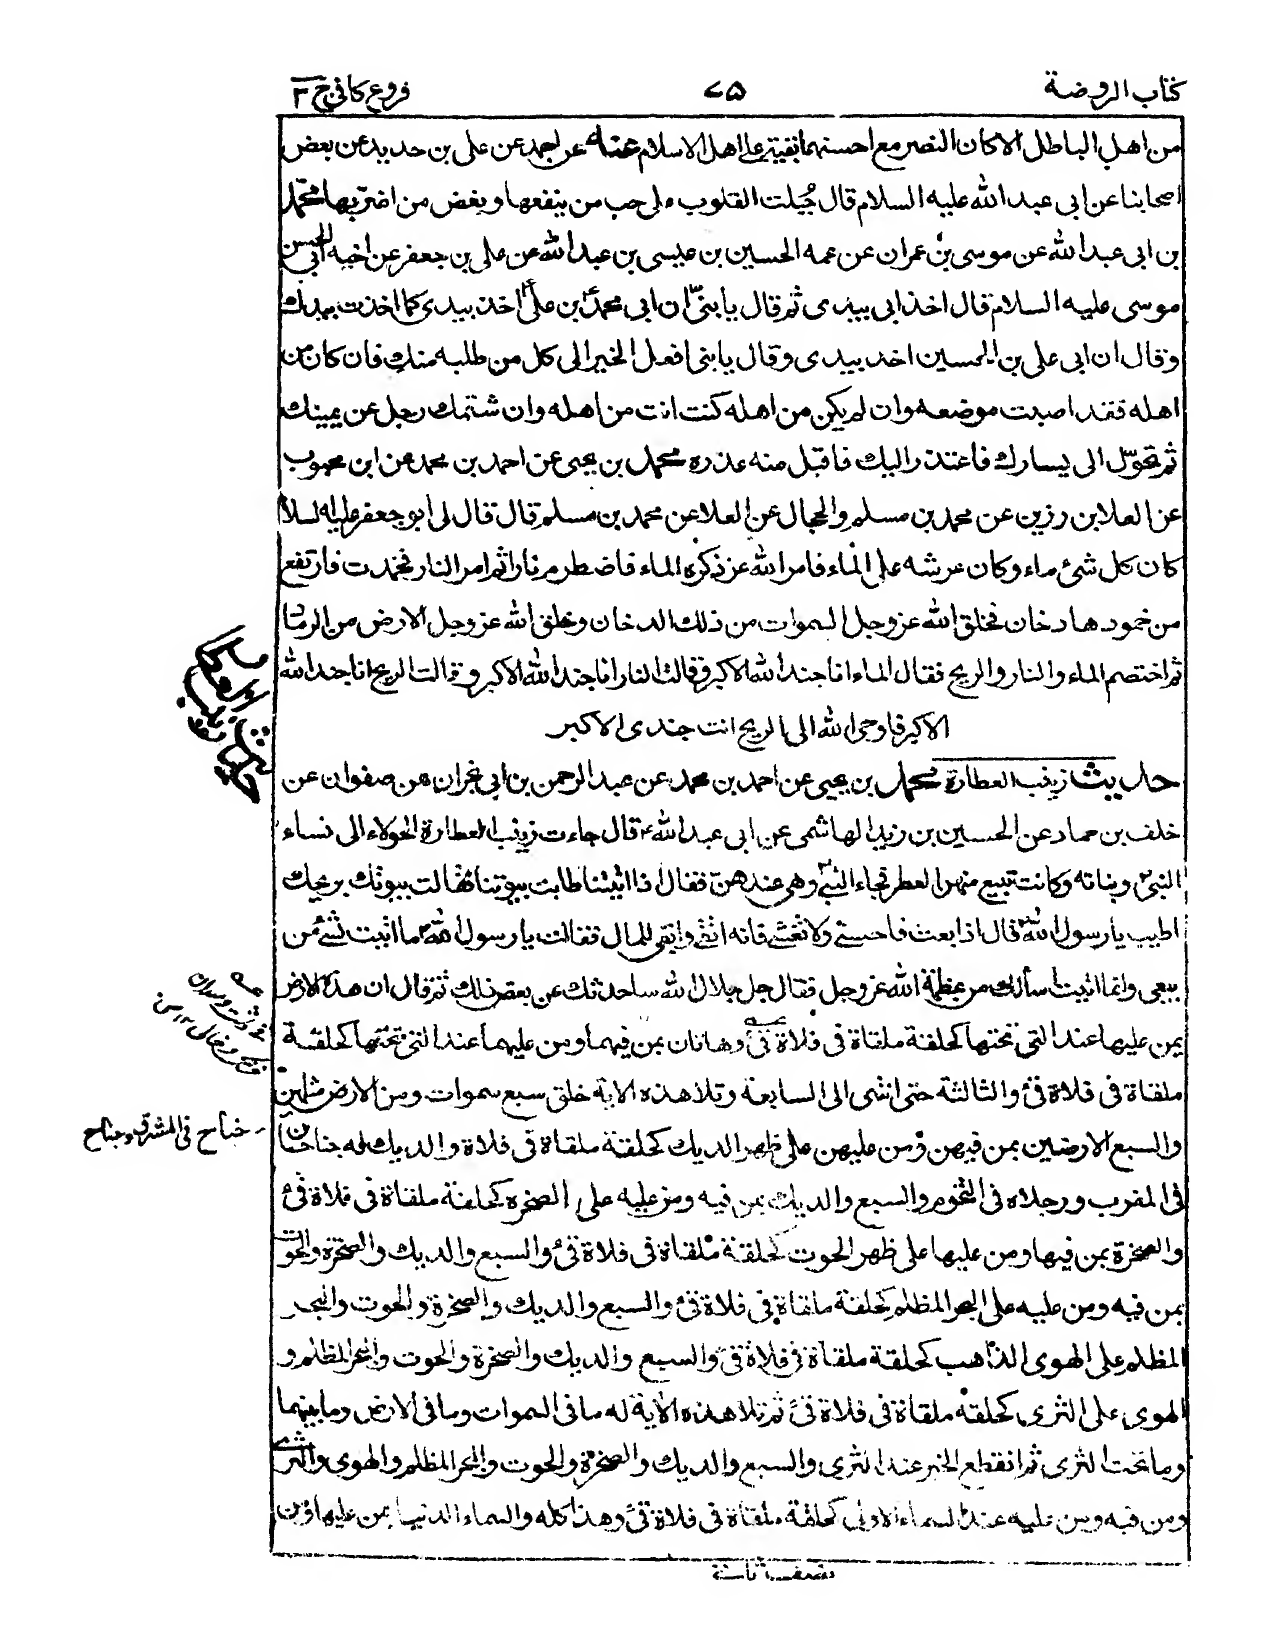 كتاب الروضة
٧٥
فروع كافى ج ٣
من اهل الباطل الا كان النصر مع احسنهما بقية على اهل الاسلام عنه عن احمد عن على بن حديد عن بعض
اصحابنا عن ابى عبد الله عليه السلام قال جُبلت القلوب على حب من ينفعها وبغض من اضربها محمد
بن ابى عبد الله عن موسى بن عمران عن عمه الحسين بن عيسى بن عبد الله عن على بن جعفر عن اخيه ابى الحسن
موسى عليه السلام قال اخذ ابى بيدى ثم قال يا بنىّ ان ابى محمد بن على اخذ بيدى كما اخذت بيدك
وقال ان ابى على بن الحسين اخذ بيدى وقال يا بنى افعل الخير الى كل من طلبه منك فان كان من
اهله فقد اصبت موضعه وان لم يكن من اهله كنت انت من اهله وان شتمك رجل عن يمينك
ثم تحوّل الى يسارك فاعتذر اليك فاقبل منه عذره محمد بن يحيى عن احمد بن محمد عن ابن محبوب
عن العلا بن رزين عن محمد بن مسلم والحجال عن العلا عن محمد بن مسلم قال قال لى ابو جعفر عليه السلام
كان كل شئ ماء وكان عرشه على الماء فامر الله عز ذكره الماء فاضطرم نارا ثم امر النار فخمدت فارتفع
من خمودها دخان فخلق الله عز وجل السموات من ذلك الدخان وخلق الله عز وجل الارض من الرماد
ثم اختصم الماء والنار والريح فقال الماء انا جند الله الاكبر وقالت النار انا جند الله الاكبر وقالت الريح انا جند الله
الاكبر فاوحى الله الى الريح انت جندى الاكبر
حديث زينب العطارة محمد بن يحيى عن احمد بن محمد عن عبد الرحمن بن ابى نجران عن صفوان عن
خلف بن حماد عن الحسين بن زيد الهاشمى عن ابى عبد الله ع قال جاءت زينب العطارة الحولاء الى نساء
النبى ص وبناته وكانت تبيع منهن العطر فجاء النبى ص وهى عندهن فقال اذا اتيتنا طابت بيوتنا فقالت بيوتك بريحك
اطيب يا رسول الله قال اذا بعت فاحسنى ولا تغشى فانه اتقى وابقى للمال فقالت يا رسول الله ما اتيت بشئ من
بيعى وانما اتيت اسألك عن عظمة الله عز وجل فقال جل جلال الله ساحدثك عن بعض ذلك ثم قال ان هذه الارض
بمن عليها عند التى تحتها كحلقة ملقاة فى فلاة قى وهاتان بمن فيهما ومن عليهما عند التى تحتها كحلقة
ملقاة فى فلاة قى والثالثة حتى انتهى الى السابعة وتلا هذه الاية خلق سبع سموات ومن الارض مثلهن
والسبع الارضين بمن فيهن ومن عليهن على ظهر الديك كحلقة ملقاة فى فلاة والديك له جناحان
جناح فى المشرق وجناح
فى المغرب ورجلاه فى التخوم والسبع والديك بمن فيه ومن عليه على الصخرة كحلقة ملقاة فى فلاة قى
والصخرة بمن فيها ومن عليها على ظهر الحوت كحلقة ملقاة فى فلاة قى والسبع والديك والصخرة والحوت
بمن فيه ومن عليه على البحر المظلم كحلقة ملقاة فى فلاة قى والسبع والديك والصخرة والحوت والبحر
المظلم على الهوى الذاهب كحلقة ملقاة فى فلاة قى والسبع والديك والصخرة والحوت والبحر المظلم و
الهوى على الثرى كحلقة ملقاة فى فلاة قى ثم تلا هذه الآية له ما فى السموات وما فى الارض وما بينهما
وما تحت الثرى ثم انقطع الخبر عند الثرى والسبع والديك والصخرة والحوت والبحر المظلم والهوى والثرى
ومن فيه ومن عليه عند السماء الاولى كحلقة ملقاة فى فلاة قى وهذا كله والسماء الدنيا بمن عليها ومن